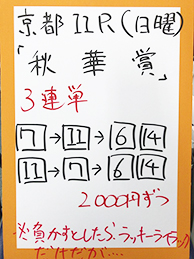 京都11R(日曜)
「秋華賞」
3連単
7→11→6 14
11→7→6 14
2000円ずつ
※負かすとしたら、ラッキーライラック
だけだが....